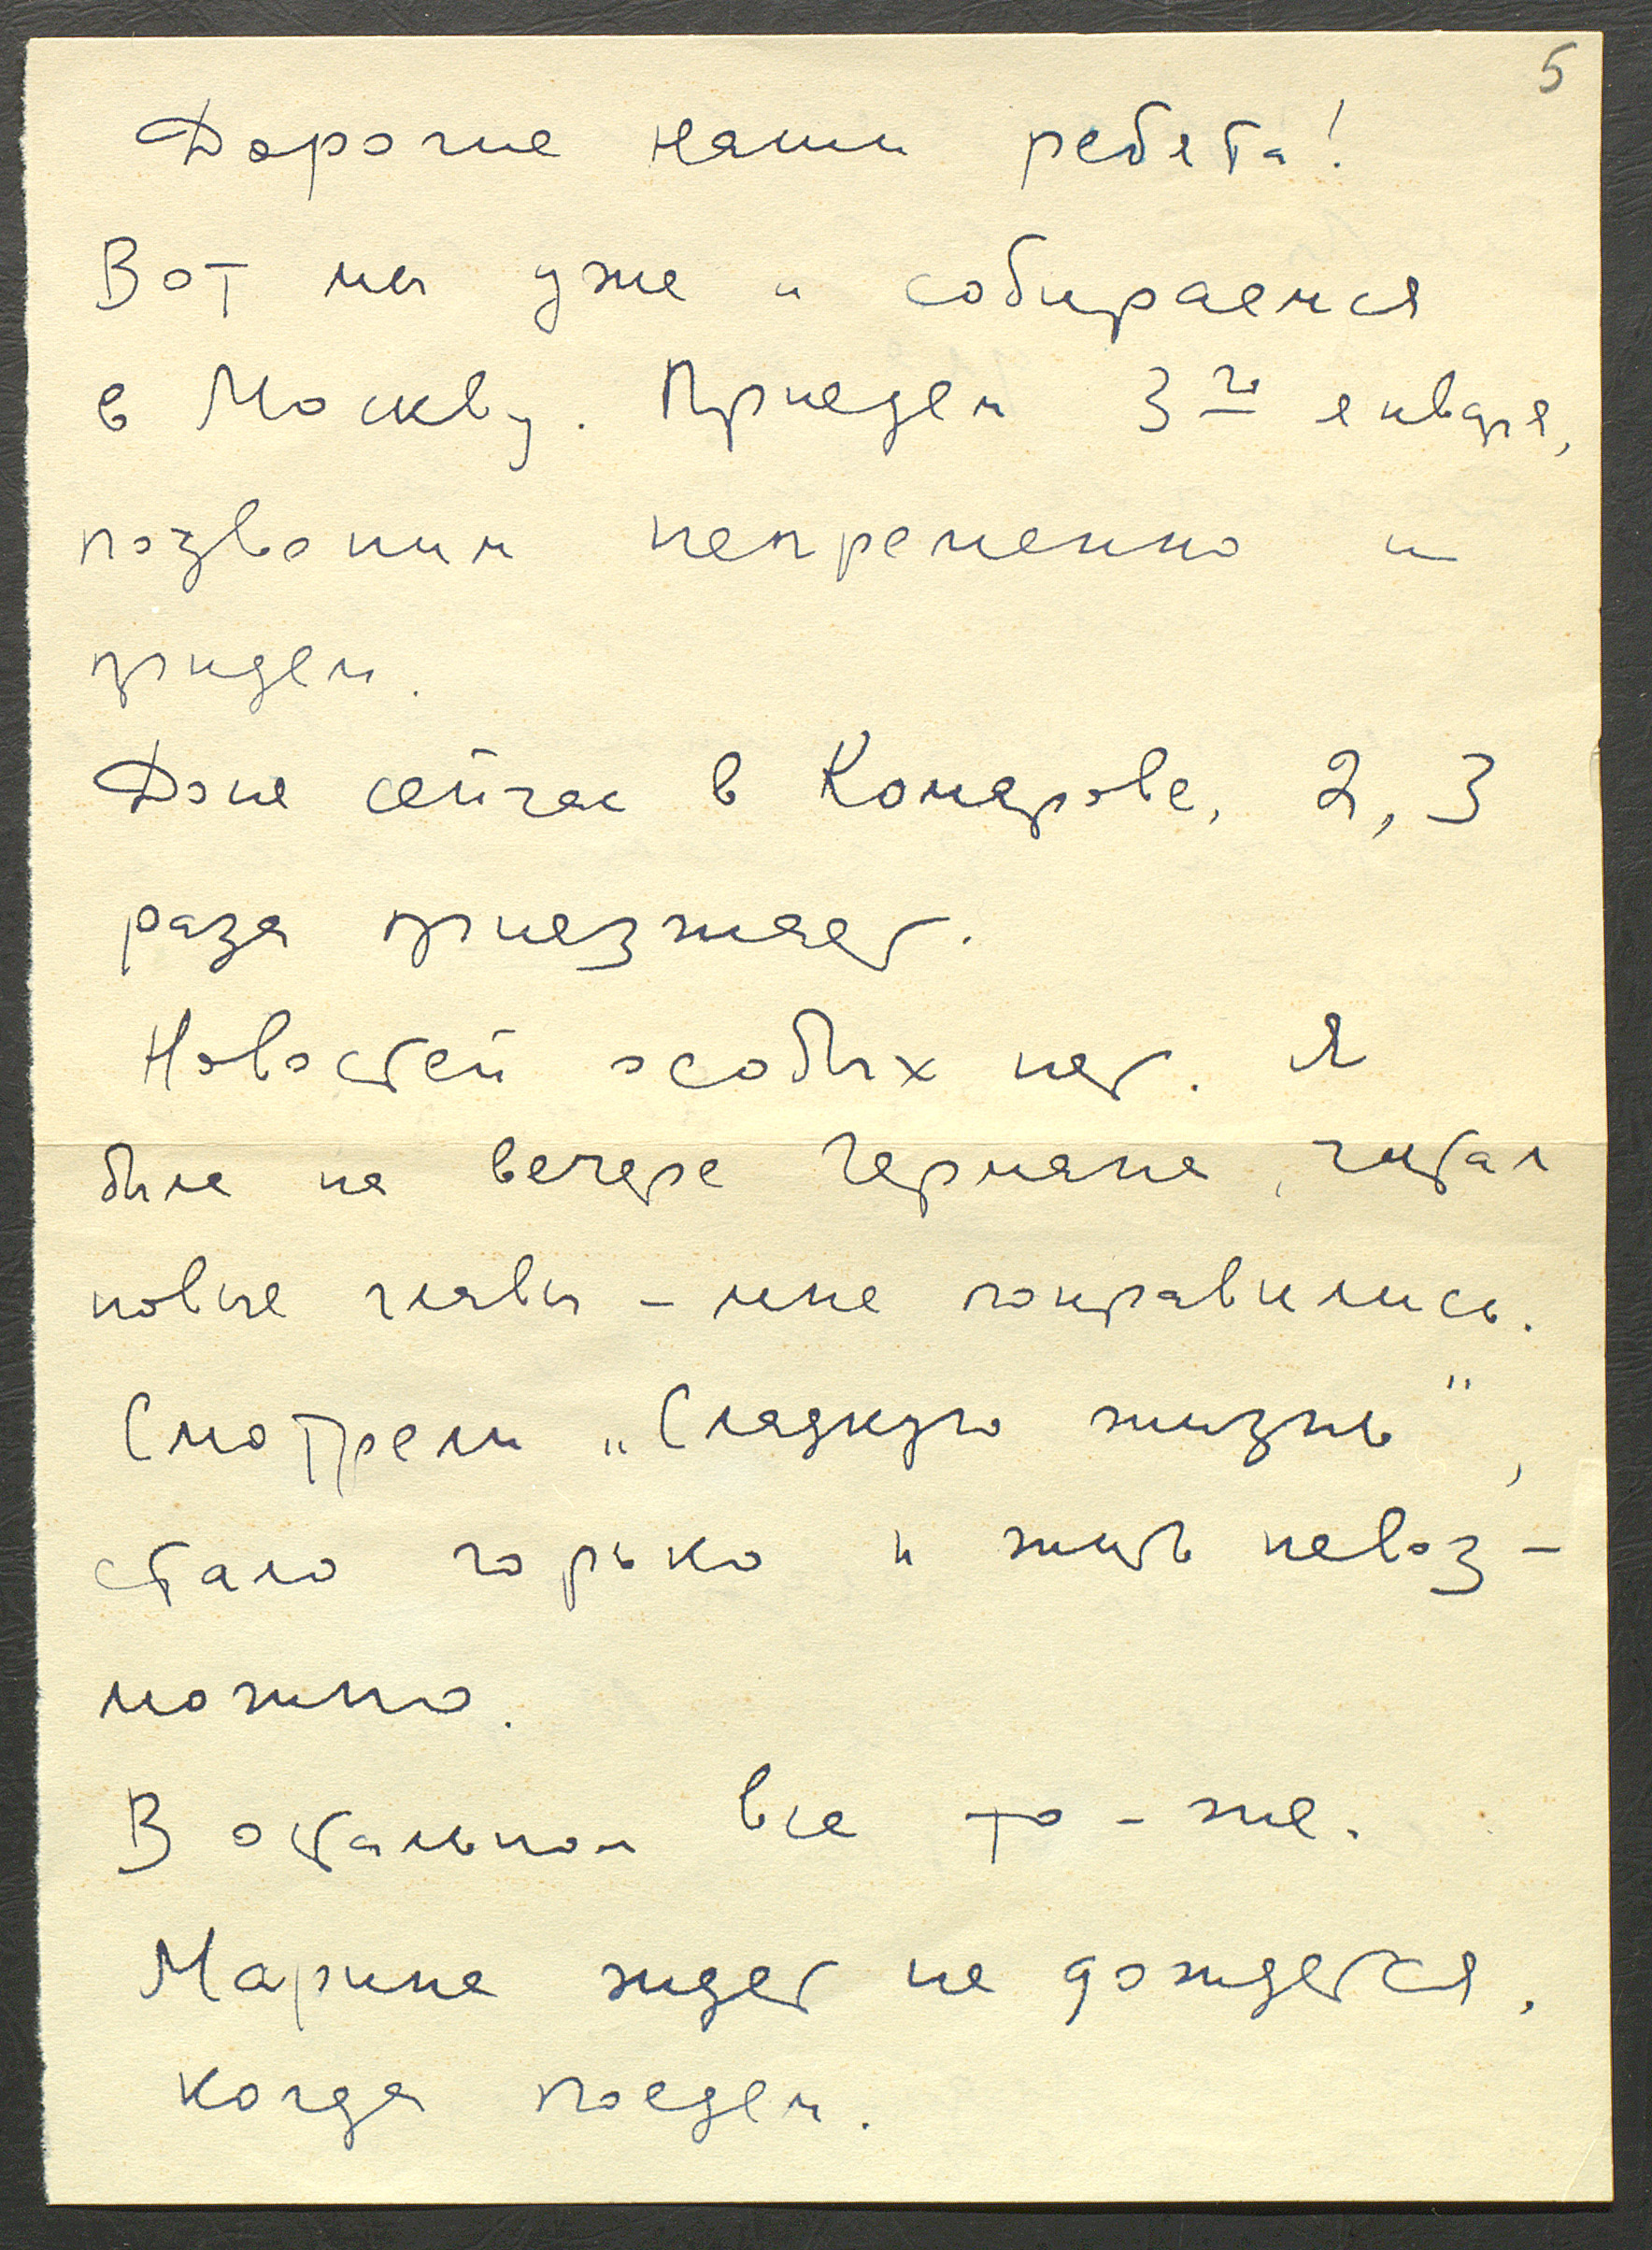 5
Дорогие наши ребята!
Вот мы уже и собираемся
в Москву. Приедем 3го января,
позвоним непременно и
придем.
Доня сейчас в Комарове, 2, 3
раза приезжает.
Новостей особых нет. Я
была на вечере Германа, читал
новые главы – мне понравились.
Смотрели „Сладкую жизнь",
стало горько и жить невоз-
можно.
В остальном все то-же.
Марина ждет не дождется,
когда поедем.